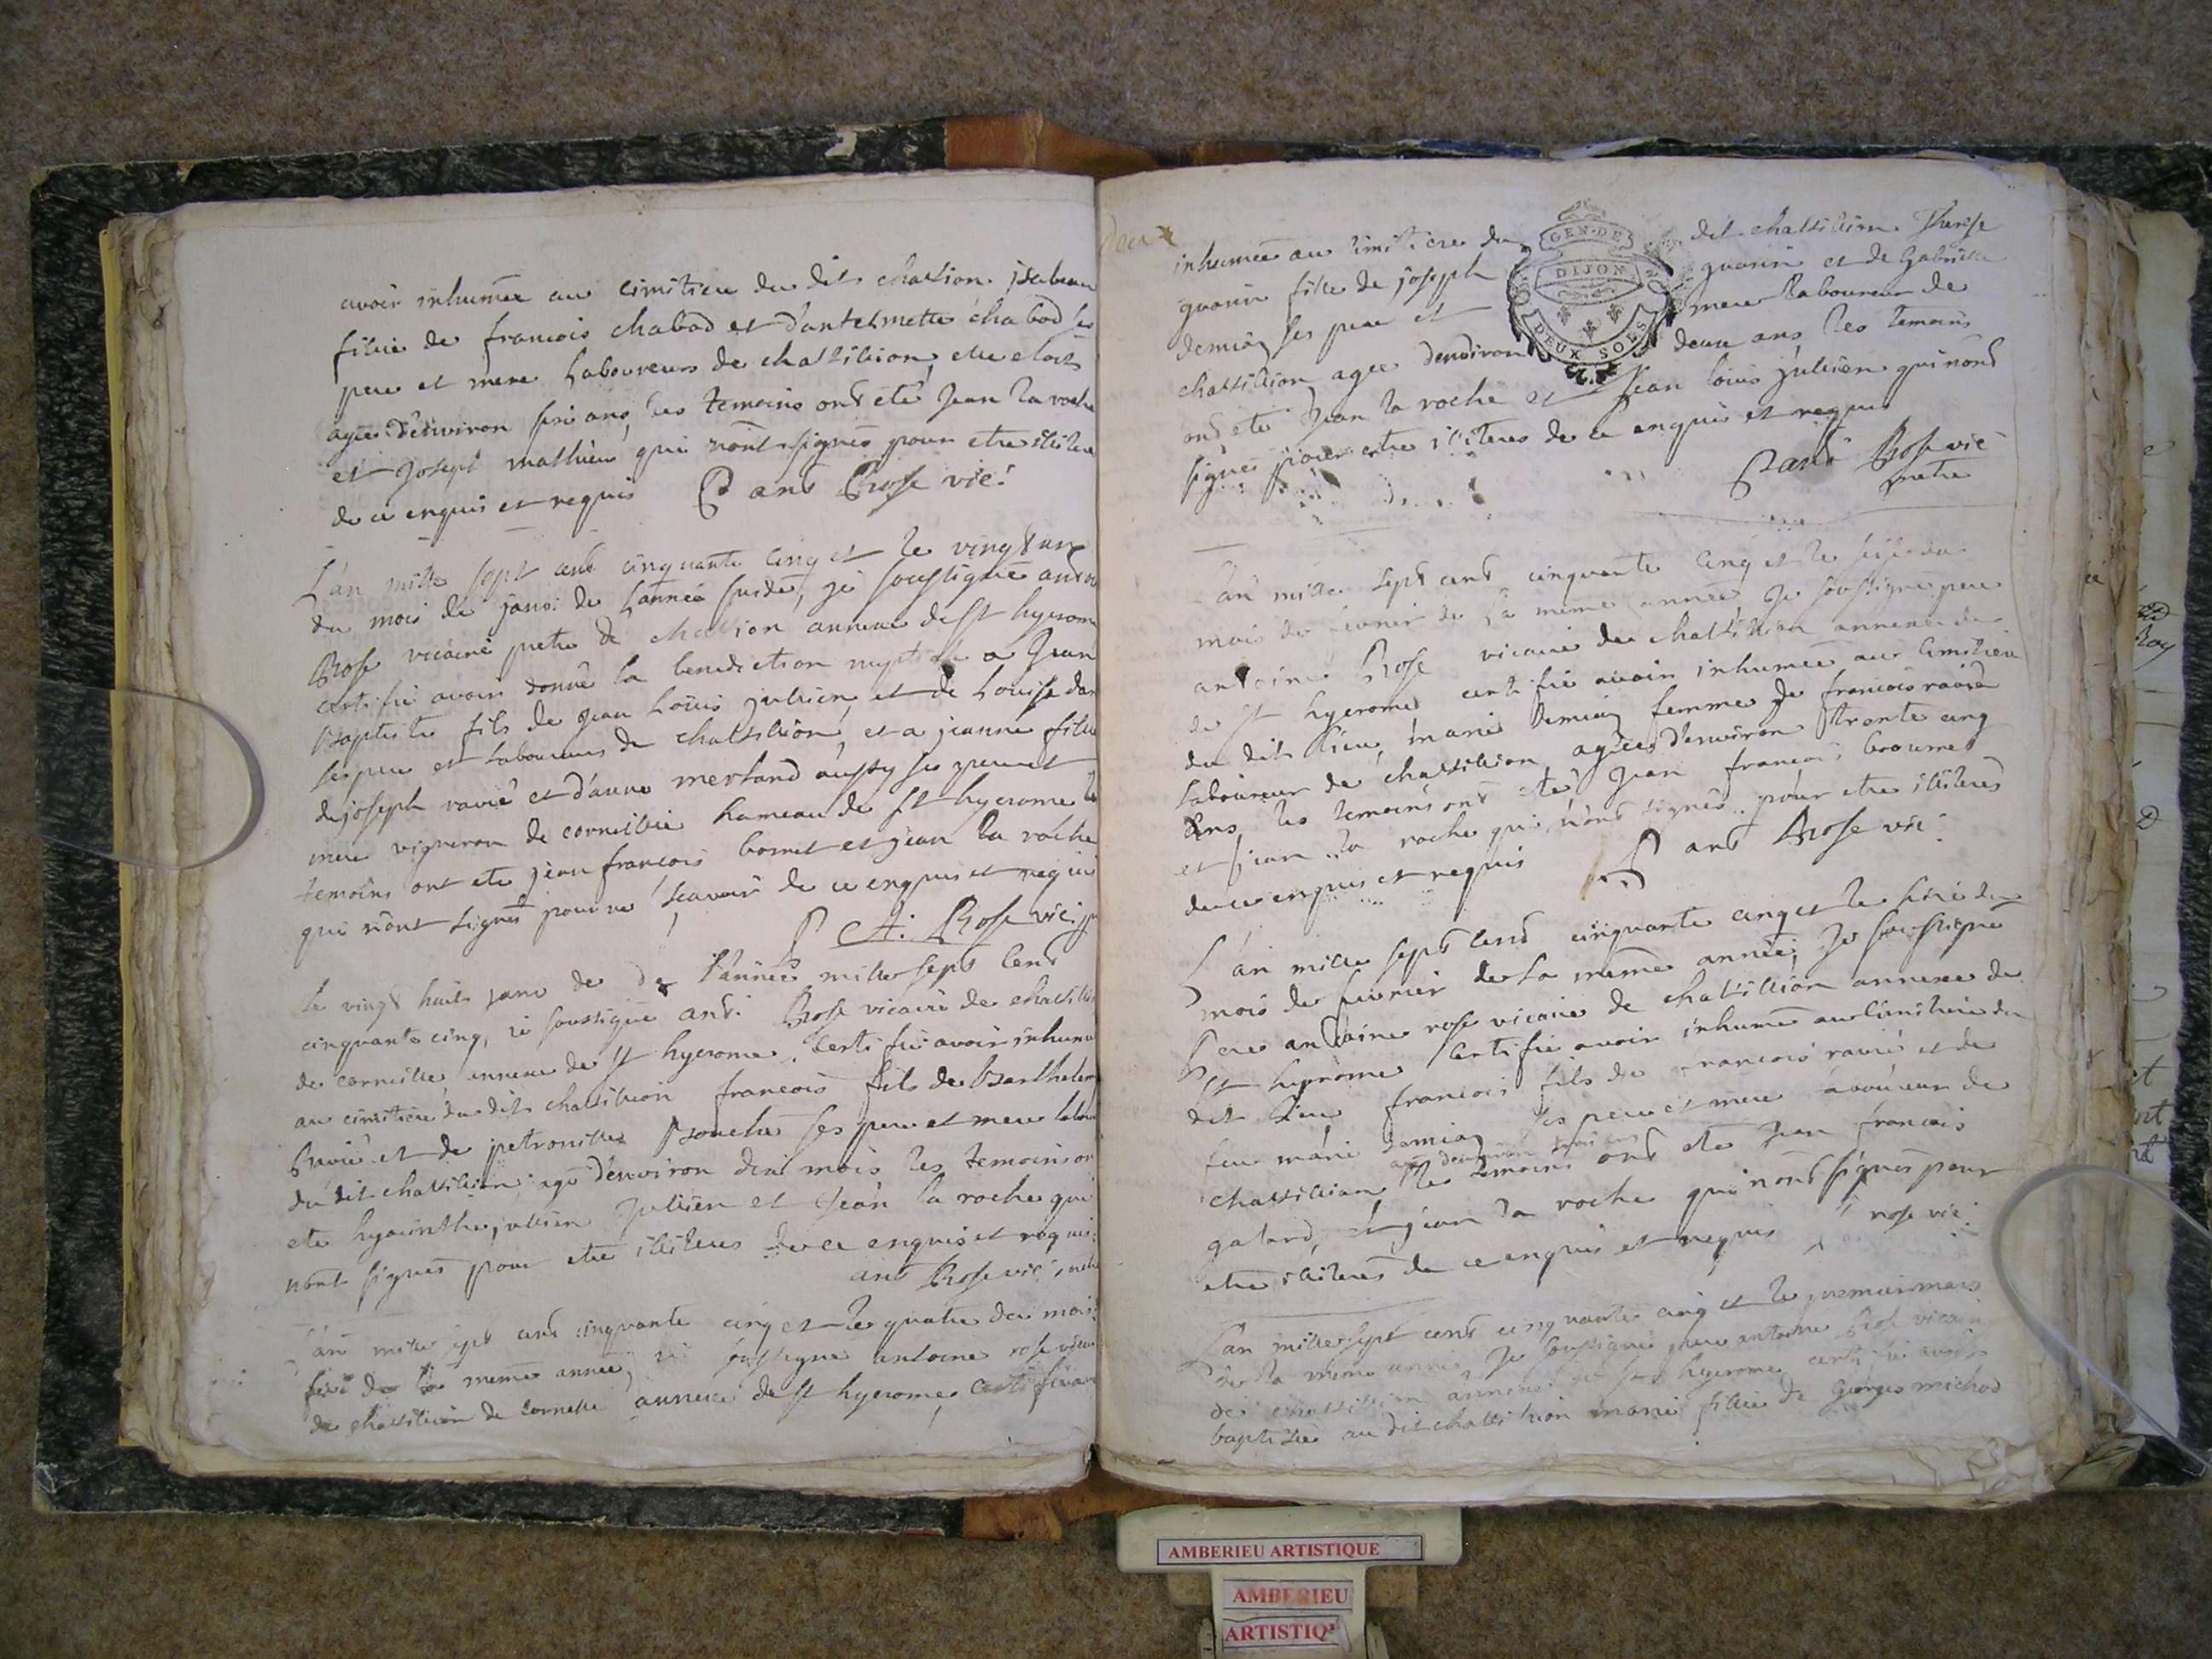 avoir inhumée au cimitiere du dit chatilion isabeau
fillie de francois chabod et d'antelmette chabod ses
pere et mere laboureurs de chattilion, elle etoit
agée d'environ ans, les temoins ont eté Jean la roche
et Joseph mathieu qui n'ont signés pour etre ilitere
de ce enquis et requis P ant Rose vic:
L'an mille sept cent cinquante cinq et le vingt un
du mois de janvi de l'année susde, je soussigné
Rose vicaire pretre de chatilion annexe de St hyerome
certifie avoir donné la benediction nuptiale a Jean
Baptiste fils de Jean Louis jullien et de Louise
ses pere et laboureurs de chattilion, et a jeanne fille
de joseph ravie et d'anne merland aussy ses pere et
mere vigneron de corneillie hameau de St hyerome le
temoins ont ete jean francois bornet et jean la roche
qui n'ont signés pour ne scavoir de ce enquis et requis
P A: Rose vic: p
le vingt huit janv de de l'année mille sept cent
cinquante cinq, je soussigné ant: Rose vicaire de chattilio
de corneille annexe de St hyerome, certifie avoir inhumé
au cimitiere du dit chattilion francois fils de Barthelem
et de petronille Bouche ses pere et mere labou
du dit chattilion agé d'environ mois les temoins on
ete hyacinthe jullien Jullien et Jean la roche qui
n'ont signés pour etre iliteres de ce enquis et requis:
ant Rose vic: pretre
L'an mille sept cent cinquante cinq et le quatre du mois
de la meme année, je soussigné antoine rose vicaire
de chattilion de corneille annexe de St hyerome, certifie avoir
deux
inhumée au cimitiere du dit chattilion Therese
guarin fille de joseph guarin et de Gabrielle
demia ses pere et mere laboureur de
chattilion agee d'environ deux ans, les temoins
ont ete Jean la roche et Jean louis jullien qui n'ont
signés pour etre iliteres de ce enquis et requis
P ant Rose vic
pretre
GEN·DE
DIJON
DEUX SOLS
L'an mille sept cent cinquante cinq et le seise du
mois de fevrier de la meme année Je soussigne pere
antoine Rose vicaire de chattilion annexe de
de St hyerome certifie avoir inhumée au cimitiere
du dit lieu, marie demia femme de francois ravie
laboureur de chattilion, agée d'environ trante cinq
ans, les temoins ont eté Jean francois
et jean la roche qui n'ont signés pour etre iliteres
de ce enquis et requis P ant Rose vic:
L'an mille sept cent cinquante cinq et le seise du
mois de fevrier de la meme année, Je soussigné
Pere antoine rose vicaire de chattilion annexe de
St hyerome certifie avoir inhumé au cimitiere du
dit lieu francois fils de francois ravie et de
feue marie demia ses pere et mere laboureur de
agé d'environ trois ans
chattilion les temoins ont ete Jean francois
galand, et jean la roche qui n'ont signés pour
etre iliteres de ce enquis et requis P rose vic:
L'an mille sept cent cinquante cinq et le premier mars
de la meme année, Je soussigné pere antoine Rose vicaire
de chattilion annexe de St hyerome certifie avoir
baptisée au dit chattilion marie fillie de Georges michod
AMBERIEU ARTISTIQUE
AMBERIEU
ARTISTIQ